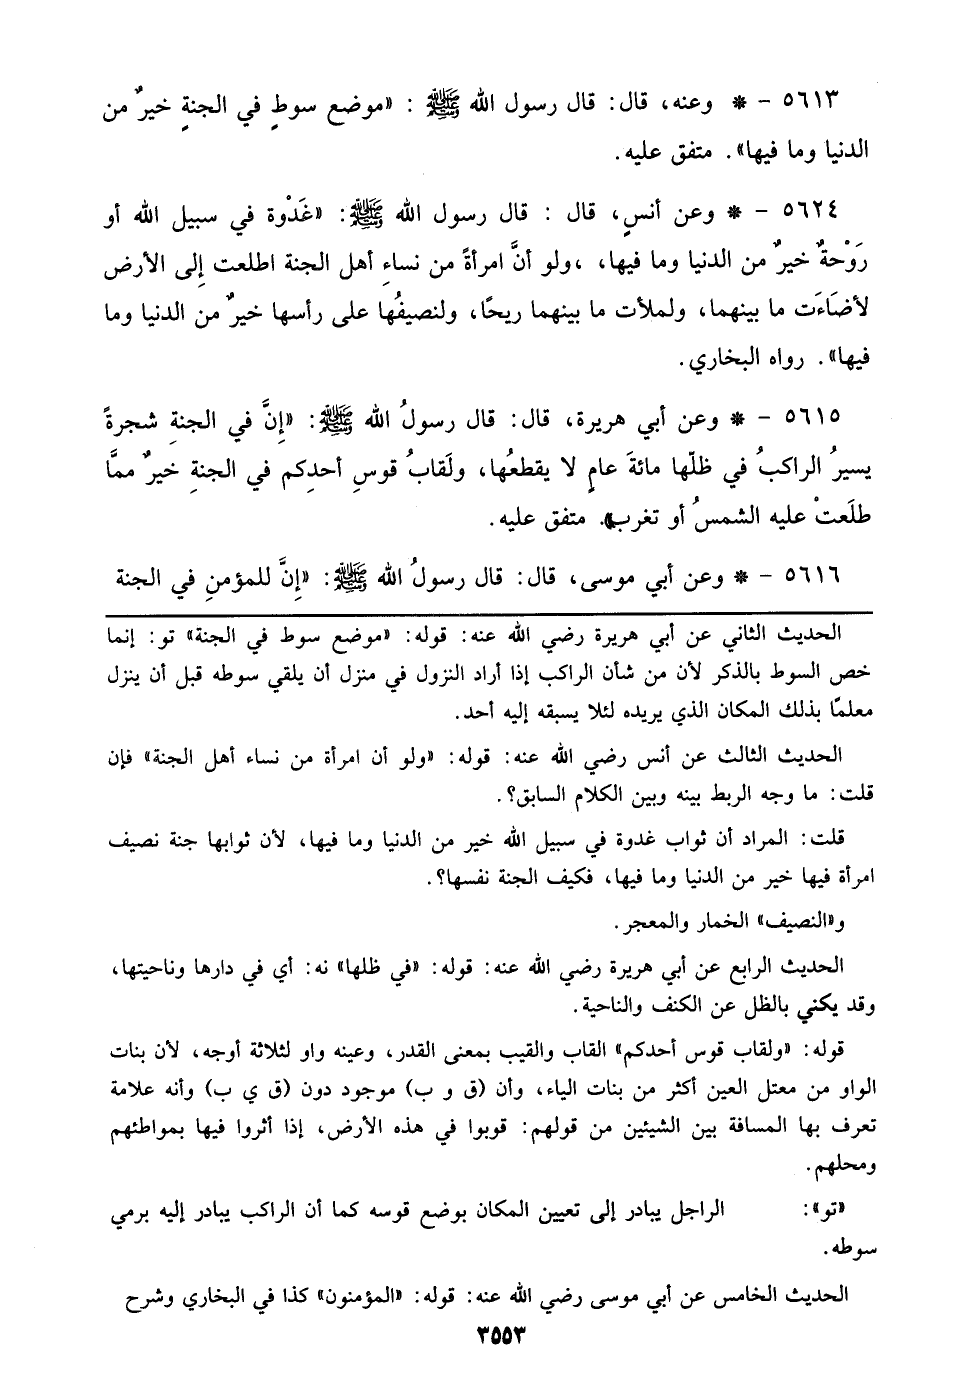 ٥٦١٣ - * وعنه، قال: قال رسول الله ﷺ : «موضع سوطٍ في الجنةِ خيرٌ من
الدنيا وما فيها». متفق عليه.
٥٦٢٤ - * وعن أنسٍ، قال : قال رسول الله ﷺ: «غَدْوة في سبيل الله أو
رَوْحةٌ خيرٌ من الدنيا وما فيها، ،ولو أنَّ امرأةً من نساءِ أهل الجنة اطلعت إِلى الأرض
لأضَاءَت ما بينهما، ولملأت ما بينهما ريحًا، ولنصيفُها على رأسها خيرٌ من الدنيا وما
فيها». رواه البخاري.
٥٦١٥ - * وعن أبي هريرة، قال: قال رسولُ الله ﷺ: «إِنَّ في الجنةِ شجرةً
يسيرُ الراكبُ في ظلّها مائةَ عامٍ لا يقطعُها، ولَقابُ قوسِ أحدِكم في الجنةِ خيرٌ ممَّا
طلَعتْ عليه الشمسُ أو تغرب». متفق عليه.
٥٦١٦ - * وعن أبي موسى، قال: قال رسولُ الله ﷺ: «إِنَّ للمؤمنِ في الجنة
الحديث الثاني عن أبي هريرة رضي الله عنه: قوله: «موضع سوط في الجنة» تو: إنما
خص السوط بالذكر لأن من شأن الراكب إذا أراد النزول في منزل أن يلقي سوطه قبل أن ينزل
معلمًا بذلك المكان الذي يريده لئلا يسبقه إليه أحد.
الحديث الثالث عن أنس رضي الله عنه: قوله: «ولو أن امرأة من نساء أهل الجنة» فإن
قلت: ما وجه الربط بينه وبين الكلام السابق؟.
قلت: المراد أن ثواب غدوة في سبيل الله خير من الدنيا وما فيها، لأن ثوابها جنة نصيف
امرأة فيها خير من الدنيا وما فيها، فكيف الجنة نفسها؟.
و«النصيف» الخمار والمعجر.
الحديث الرابع عن أبي هريرة رضي الله عنه: قوله: «في ظلها» نه: أي في دارها وناحيتها،
وقد يكني بالظل عن الكنف والناحية.
قوله: «ولقاب قوس أحدكم» القاب والقيب بمعنى القدر، وعينه واو لثلاثة أوجه، لأن بنات
الواو من معتل العين أكثر من بنات الياء، وأن (ق و ب) موجود دون (ق ي ب) وأنه علامة
تعرف بها المسافة بين الشيئين من قولهم: قوبوا في هذه الأرض، إذا أثروا فيها بمواطئهم
ومحلهم.
«تو»: الراجل يبادر إلى تعيين المكان بوضع قوسه كما أن الراكب يبادر إليه برمي
سوطه.
الحديث الخامس عن أبي موسى رضي الله عنه: قوله: «المؤمنون» كذا في البخاري وشرح
٣٥٥٣